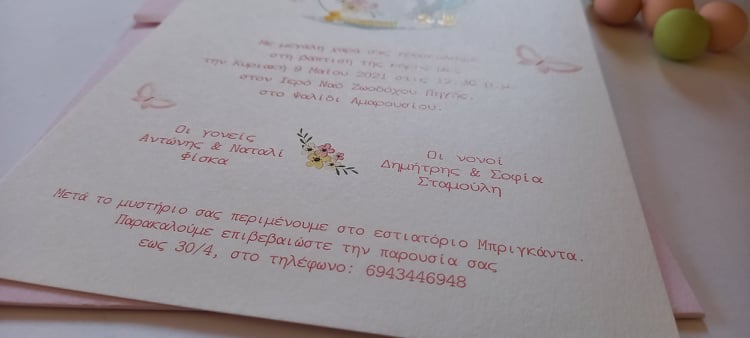 Με μεγάλη χαρά σας προσκαλούμε
στη βάπτιση της κόρης μας
την Κυριακή 9 Μαΐου 2021 στις 12.30 π.μ.
στον Ιερό Ναό Ζωοδόχου Πηγής,
στο Ψαλίδι Αμαρουσίου.
Οι γονείς
Αντώνης & Ναταλί
Φίσκα
Οι νονοί
Δημήτρης & Σοφία
Σταμούλη
Μετά το μυστήριο σας περιμένουμε στο εστιατόριο Μπριγκάντα.
Παρακαλούμε επιβεβαιώστε την παρουσία σας
εως 30/4, στο τηλέφωνο: 6943446948